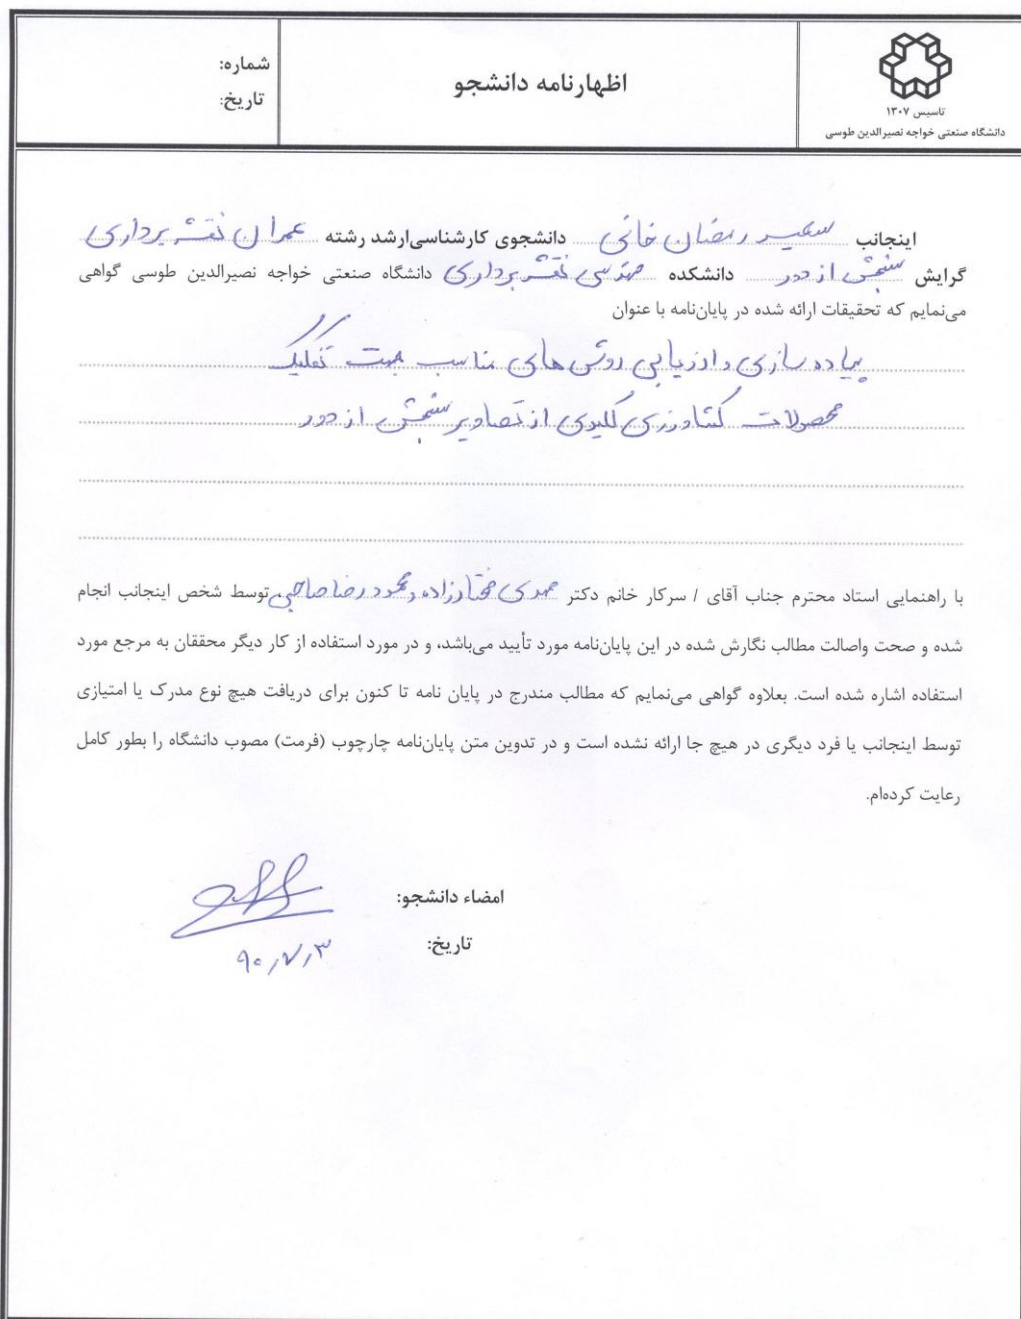 تاسیس ۱۳۰۷
دانشگاه صنعتی خواجه نصیرالدین طوسی
اظهارنامه دانشجو
شماره:
تاریخ:
اینجانب سعید رمضان خانی دانشجوی کارشناسی‌ارشد رشته عمران نقشه برداری
گرایش سنجش از دور دانشکده مهندسی نقشه برداری دانشگاه صنعتی خواجه نصیرالدین طوسی گواهی
می‌نمایم که تحقیقات ارائه شده در پایان‌نامه با عنوان
پیاده سازی و ارزیابی روش های مناسب جهت تفکیک
محصولات کشاورزی کلیدی از تصاویر سنجش از دور
با راهنمایی استاد محترم جناب آقای / سرکار خانم دکتر مهدی مختارزاده و محمودرضا صاحبی، توسط شخص اینجانب انجام
شده و صحت واصالت مطالب نگارش شده در این پایان‌نامه مورد تأیید می‌باشد، و در مورد استفاده از کار دیگر محققان به مرجع مورد
استفاده اشاره شده است. بعلاوه گواهی می‌نمایم که مطالب مندرج در پایان نامه تا کنون برای دریافت هیچ نوع مدرک یا امتیازی
توسط اینجانب یا فرد دیگری در هیچ جا ارائه نشده است و در تدوین متن پایان‌نامه چارچوب (فرمت) مصوب دانشگاه را بطور کامل
رعایت کرده‌ام.
امضاء دانشجو:
تاریخ:
۹۰٫۷٫۳